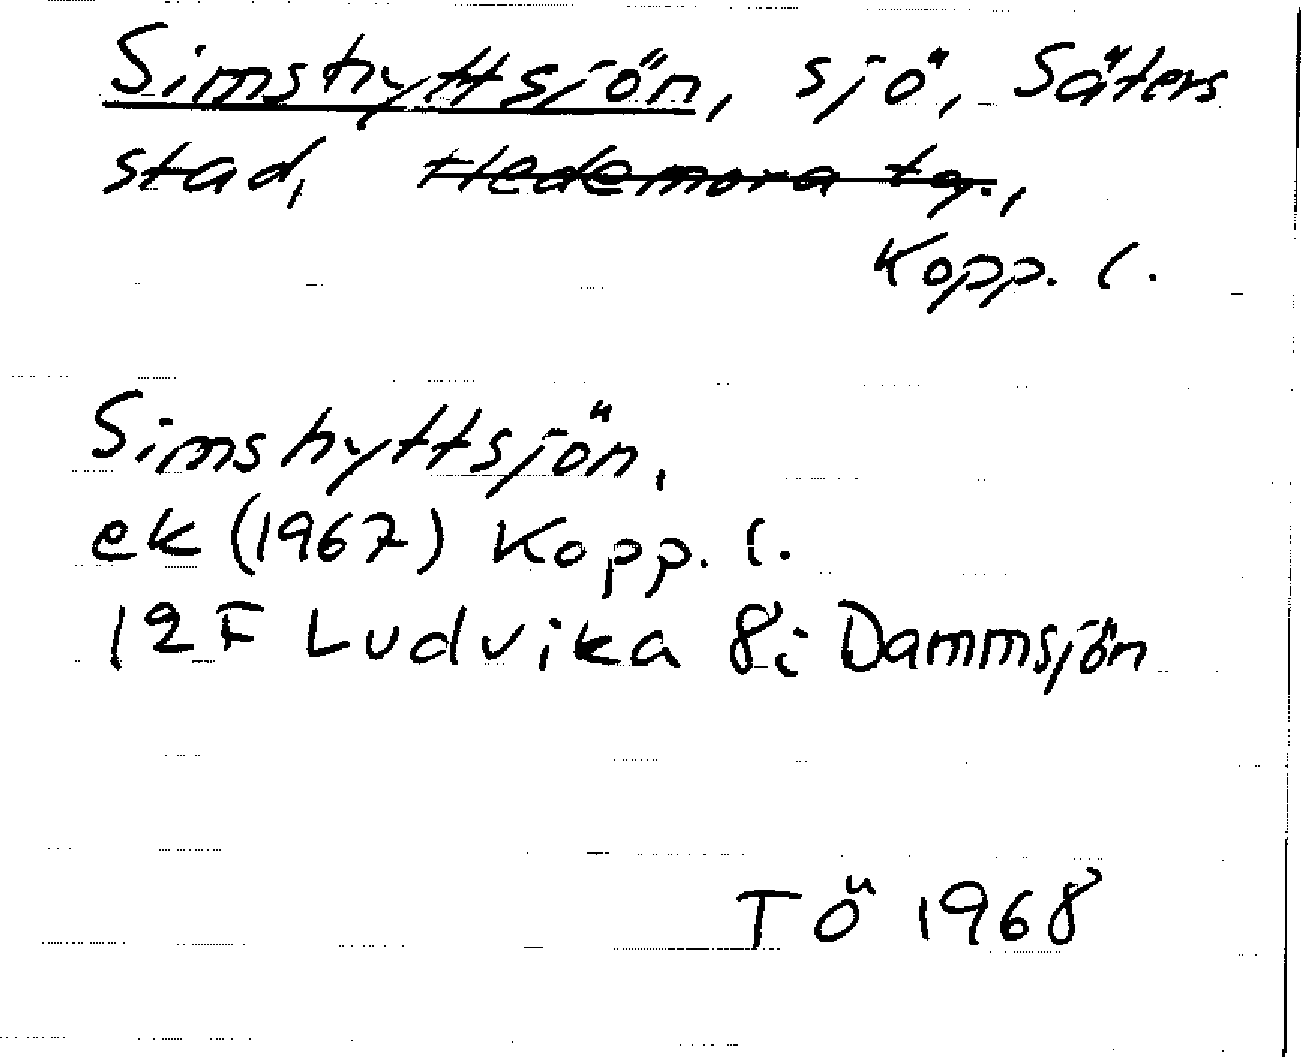 Simshyttsjön, sjö, Säters
stad, Hedemora tg.,
Kopp. l.
Simshyttsjön,
ek (1967) Kopp. l.
12F Ludvika 8i Dammsjön
TÖ 1968